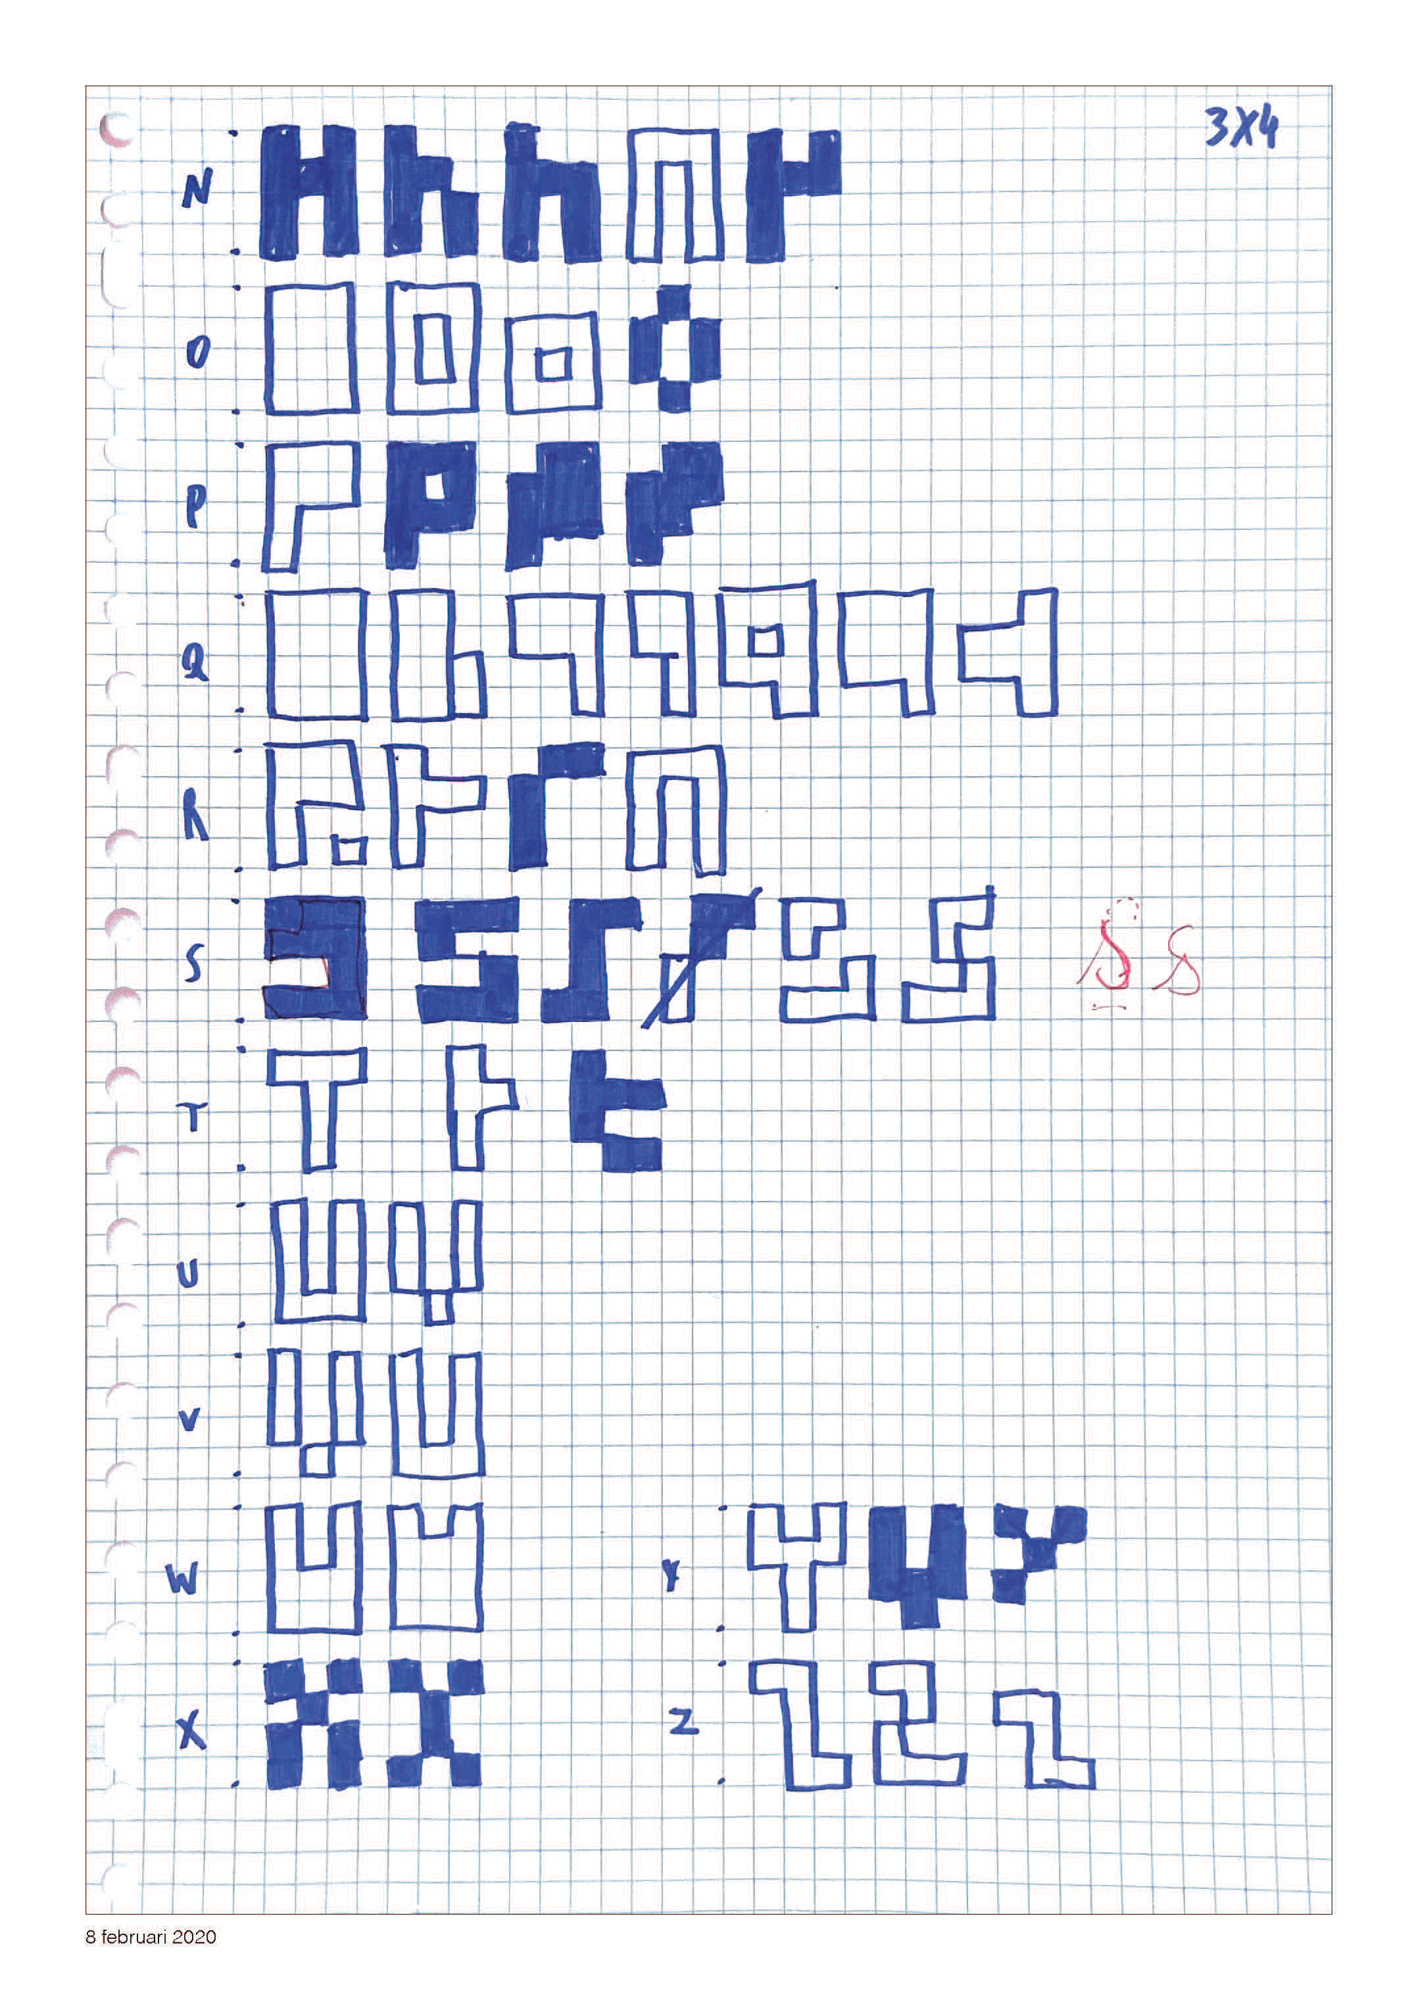 3X4
N
O
P
Q
R
S S S
T
U
V
W Y
X Z
8 februari 2020